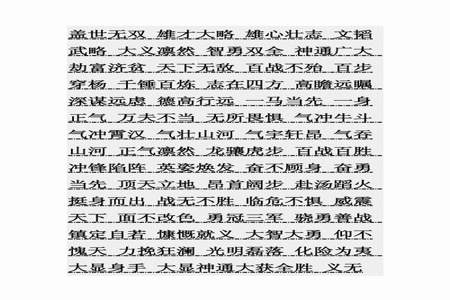 盖世无双 雄才大略 雄心壮志 文韬
武略 大义凛然 智勇双全 神通广大
劫富济贫 天下无敌 百战不殆 百步
穿杨 千锤百炼 志在四方 高瞻远瞩
深谋远虑 德高行远 一马当先 一身
正气 万夫不当 无所畏惧 气冲牛斗
气冲霄汉 气壮山河 气宇轩昂 气吞
山河 正气凛然 龙骧虎步 百战百胜
冲锋陷阵 英姿焕发 奋不顾身 奋勇
当先 顶天立地 昂首阔步 赴汤蹈火
挺身而出 战无不胜 临危不惧 威震
天下 面不改色 勇冠三军 骁勇善战
镇定自若 慷慨就义 大智大勇 仰不
愧天 力挽狂澜 光明磊落 化险为夷
大显身手 大显神通大获全胜 义无